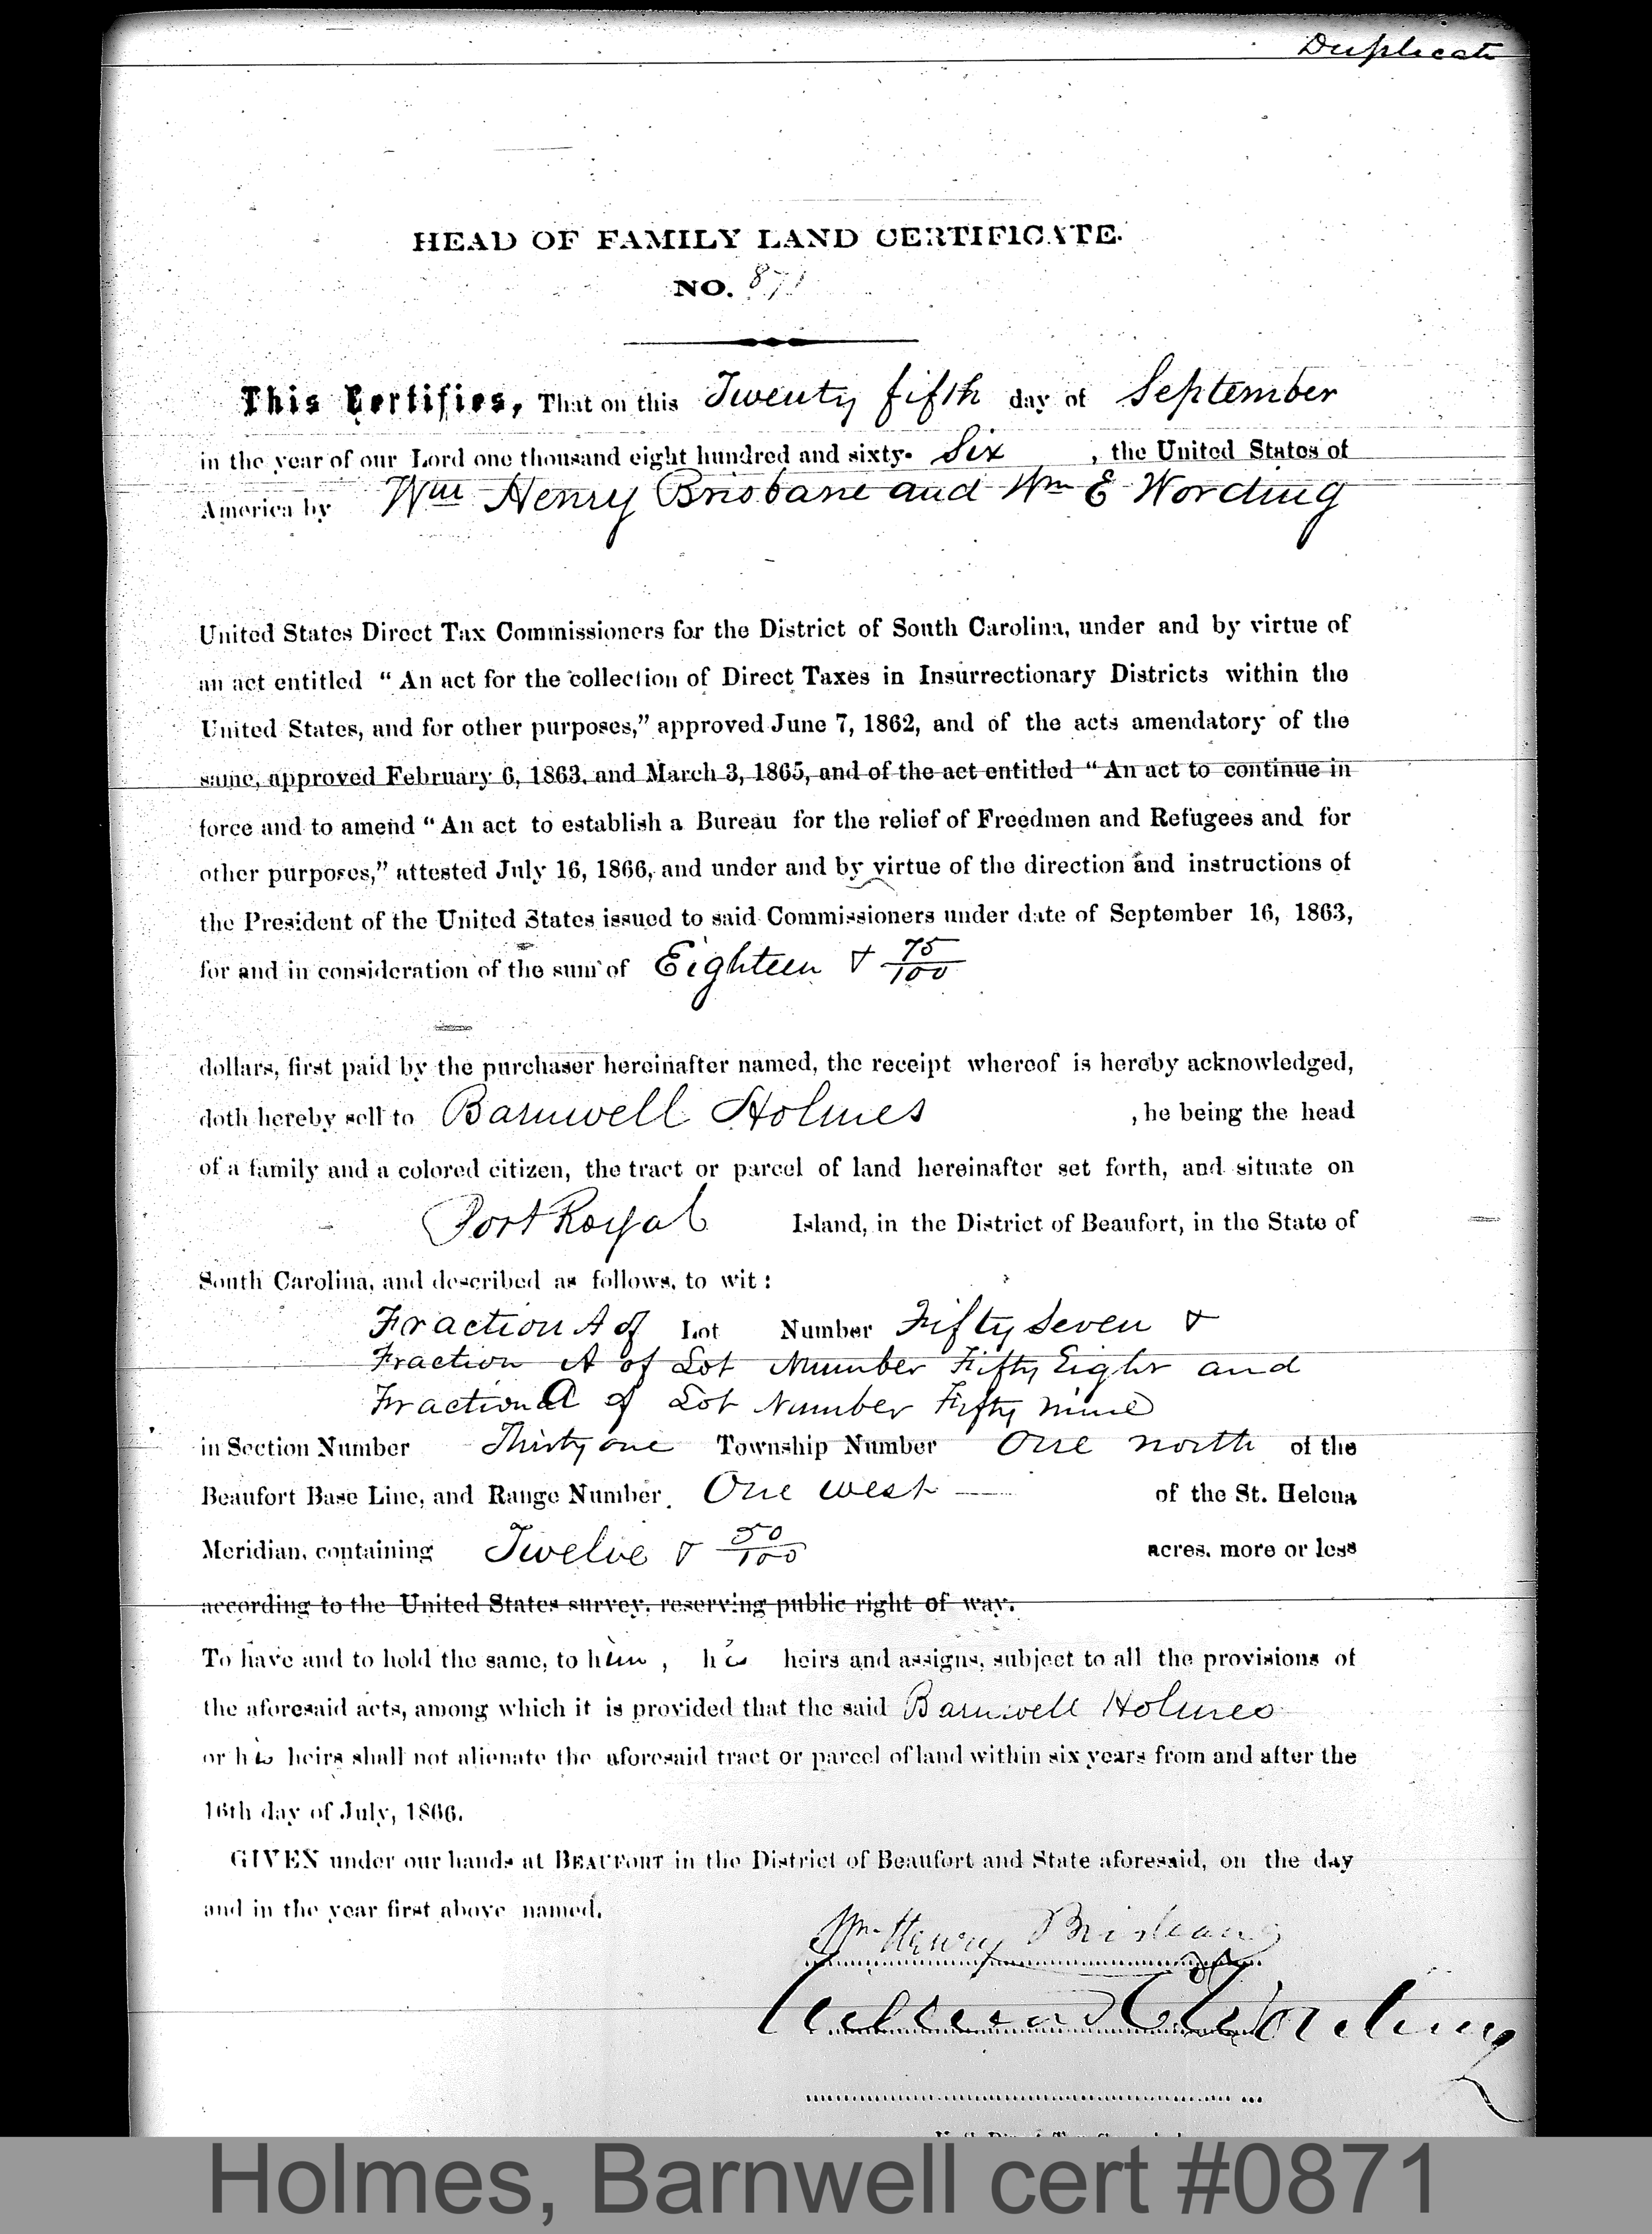 Duplicate
HEAD OF FAMILY LAND CERTIFICATE.
NO. 871
This Certifies, That on this Twenty fifth day of September
in the year of our Lord one thousand eight hundred and sixty- Six , the United States of
America by Wm Henry Brisbane and Wm E Wording
United States Direct Tax Commissioners for the District of South Carolina, under and by virtue of
an act entitled “ An act for the collection of Direct Taxes in Insurrectionary Districts within the
United States, and for other purposes,” approved June 7, 1862, and of the acts amendatory of the
same, approved February 6, 1863, and March 3, 1865, and of the act entitled “ An act to continue in
force and to amend “ An act to establish a Bureau for the relief of Freedmen and Refugees and for
other purposes,” attested July 16, 1866, and under and by virtue of the direction and instructions of
the President of the United States issued to said Commissioners under date of September 16, 1863,
for and in consideration of the sum of Eighteen & 75/100
dollars, first paid by the purchaser hereinafter named, the receipt whereof is hereby acknowledged,
doth hereby sell to Barnwell Holmes , he being the head
of a family and a colored citizen, the tract or parcel of land hereinafter set forth, and situate on
Port Royal Island, in the District of Beaufort, in the State of
South Carolina, and described as follows, to wit :
Fraction A of Lot Number Fifty Seven &
Fraction A of Lot Number Fifty Eight and
Fraction A of Lot Number Fifty nine
in Section Number Thirty one Township Number One north of the
Beaufort Base Line, and Range Number One west of the St. Helena
Meridian, containing Twelve & 50/100 acres, more or less
according to the United States survey, reserving public right of way.
To have and to hold the same, to him , his heirs and assigns, subject to all the provisions of
the aforesaid acts, among which it is provided that the said Barnwell Holmes
or his heirs shall not alienate the aforesaid tract or parcel of land within six years from and after the
16th day of July, 1866.
GIVEN under our hands at BEAUFORT in the District of Beaufort and State aforesaid, on the day
and in the year first above named.
Wm Henry Brisbane
William E Wording
Holmes, Barnwell cert #0871